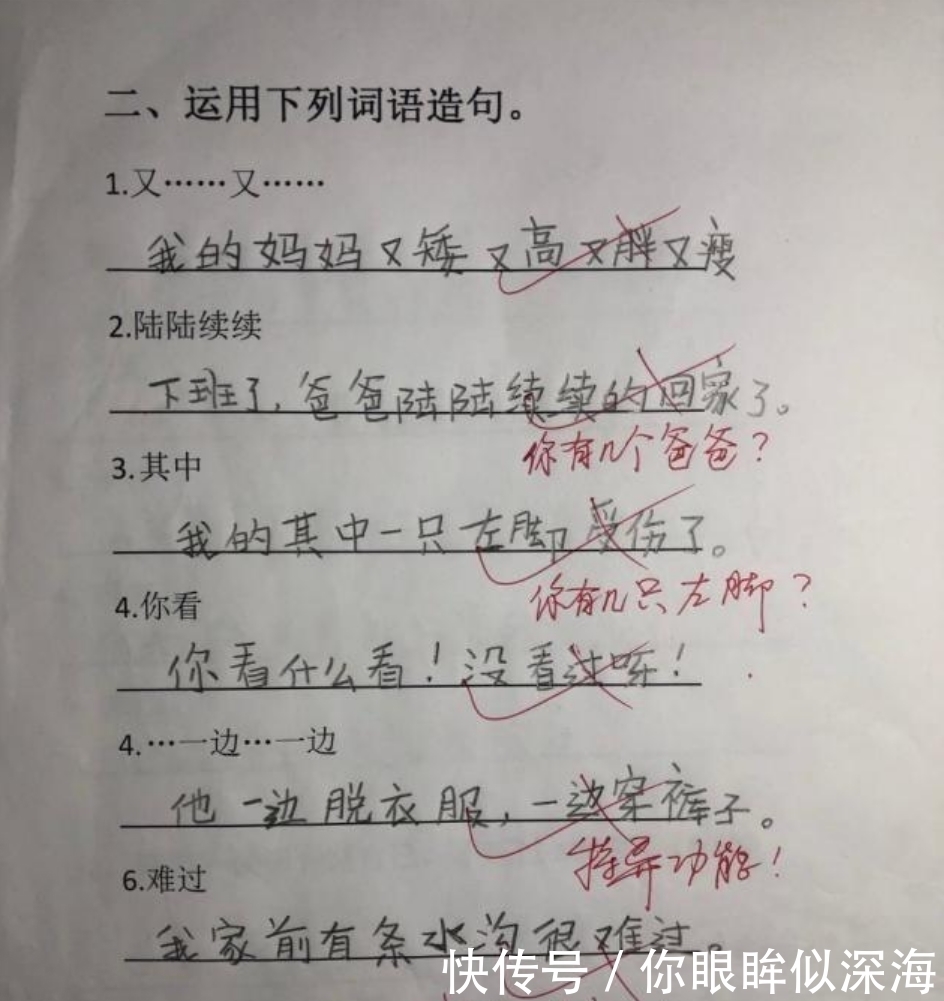 二、运用下列词语造句。
1.又……又……
我的妈妈又矮又高又胖又瘦
2.陆陆续续
下班了,爸爸陆陆续续的回家了。
你有几个爸爸?
3.其中
我的其中一只左脚受伤了。
你有几只左脚?
4.你看
你看什么看!没看过呀!
4.…一边…一边
他一边脱衣服,一边穿裤子。
特异功能!
6.难过
我家前有条水沟很难过。
快传号/你眼眸似深海